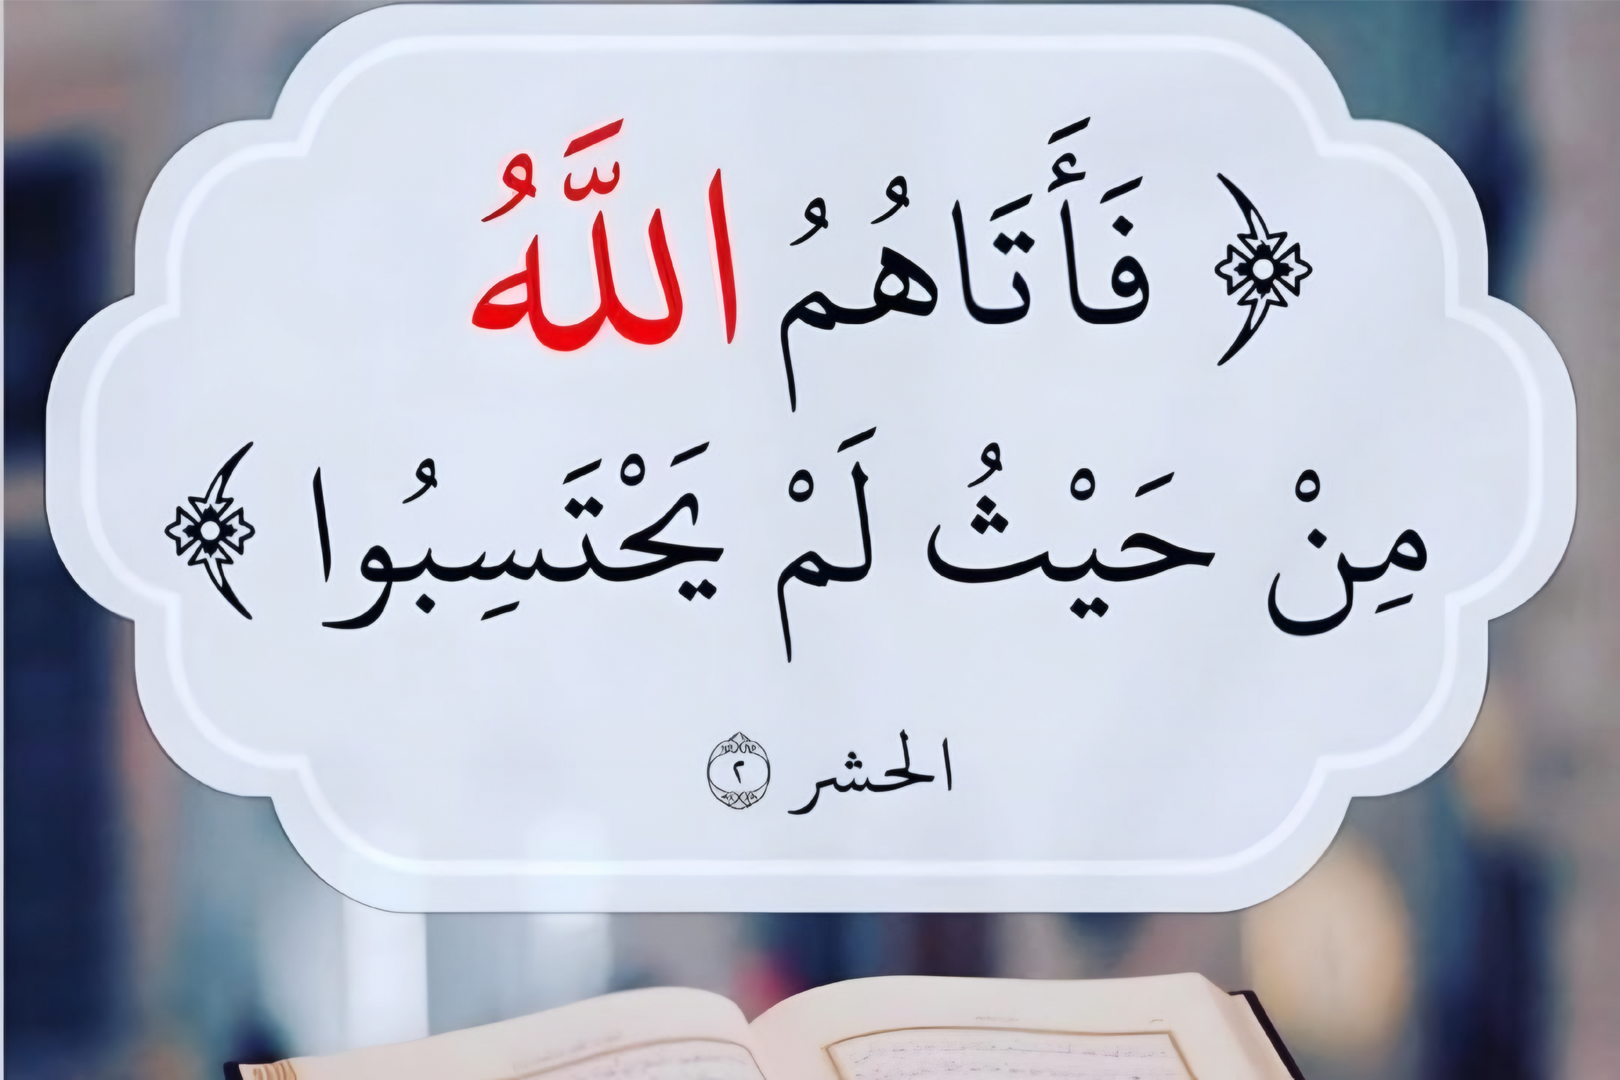 ﴿ فَأَتَاهُمُ اللَّهُ
مِنْ حَيْثُ لَمْ يَحْتَسِبُوا ﴾
الحشر ٢